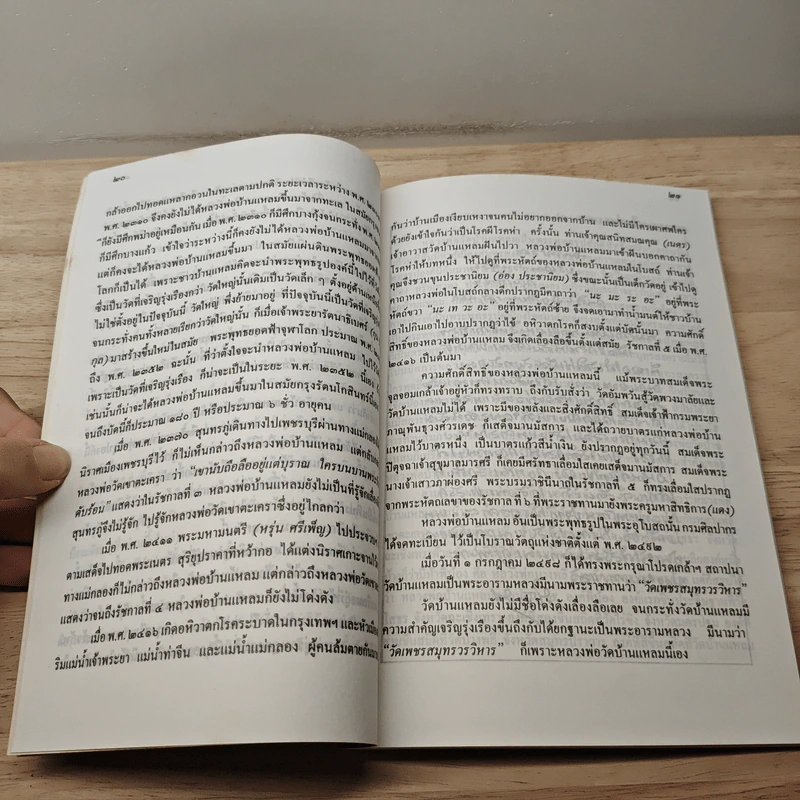 ๒๐
กล้าออกไปทอดแหลากอวนในทะเลตามปกติ ระยะเวลาระหว่าง พ.ศ.
๒๓๑๐ จึงคงยังไม่ได้หลวงพ่อบ้านแหลมขึ้นมาจากทะเล ในสมัย
ก็ยังมีศึกพม่าอยู่เหมือนกัน เมื่อ พ.ศ. ๒๓๑๐ ก็มีศึกบางกุ้งจนกระทั่ง พ.ศ.
ก็มีศึกบางแก้ว เข้าใจว่าระหว่างนี้ก็คงยังไม่ได้หลวงพ่อบ้านแหลม
แต่ก็คงจะได้หลวงพ่อบ้านแหลมขึ้นมา ในสมัยแผ่นดินพระพุทธยอดฟ้า
โลกก็เป็นได้ เพราะชาวบ้านแหลมคิดจะนำพระพุทธรูปองค์นี้ไปไว้
ซึ่งเป็นวัดที่เจริญรุ่งเรืองกว่า วัดใหญ่นั้นเดิมเป็นวัดเล็ก ๆ ตั้งอยู่ด้านเหนือ
ไม่ใช่ตั้งอยู่ในปัจจุบันนี้ วัดใหญ่ พึ่งย้ายมาอยู่ ที่ปัจจุบันนี้เป็นวัดที่เจริญ
จนกระทั่งคนทั้งหลายเรียกว่าวัดใหญ่นั้น ก็เมื่อเจ้าพระยารัตนาธิเบศร์
กุล) มาสร้างขึ้นใหม่ในสมัย พระพุทธยอดฟ้าจุฬาโลก ประมาณ พ.ศ.
ถึง พ.ศ. ๒๓๕๒ ฉะนั้น ที่ว่าตั้งใจจะนำหลวงพ่อบ้านแหลม ไปไว้
เพราะเป็นวัดที่เจริญรุ่งเรือง ก็น่าจะเป็นในระยะ พ.ศ. ๒๓๕๒ นี้เอง
เช่นนั้นก็น่าจะได้หลวงพ่อบ้านแหลมขึ้นมาในสมัยกรุงรัตนโกสินทร์
จนถึงบัดนี้ก็ประมาณ ๑๘๐ ปี หรือประมาณ ๖ ชั่ว อายุคน
เมื่อ พ.ศ. ๒๓๗๐ สุนทรภู่เดินทางไปเพชรบุรีผ่านทางแม่กลอง
นิราศเมืองเพชรบุรีไว้ ก็ไม่เห็นกล่าวถึงหลวงพ่อบ้านแหลม แต่กลับ
หลวงพ่อวัดเขาตะเครา ว่า “เขานับถือลืออยู่แต่บุราณ ใครบนบาน
ดับร้อน” แสดงว่าในรัชกาลที่ ๓ หลวงพ่อบ้านแหลมยังไม่เป็นที่รู้จัก
สุนทรภู่จึงไม่รู้จัก ไปรู้จักหลวงพ่อวัดเขาตะเคราซึ่งอยู่ไกลกว่า
เมื่อ พ.ศ. ๒๔๑๑ พระมหามนตรี (หรุ่น ศรีเพ็ญ) ไป
ตามเสด็จไปทอดพระเนตร สุริยุปราคาที่หว้ากอ ได้แต่งนิราศเกาะจาน
ทางแม่กลองก็ไม่กล่าวถึงหลวงพ่อบ้านแหลม แต่กล่าวถึงหลวงพ่อวัดเขา
แสดงว่าจนถึงรัชกาลที่ ๔ หลวงพ่อบ้านแหลมก็ยังไม่โด่งดัง
เมื่อ พ.ศ. ๒๔๑๖ เกิดอหิวาตกโรคระบาดในกรุงเทพฯ และหัวเมือง
ริมแม่น้ำเจ้าพระยา แม่น้ำท่าจีน และแม่น้ำแม่กลอง ผู้คนล้มตายกัน
๒๑
กันว่าบ้านเมืองเงียบเหงาจนคนไม่อยากออกจากบ้าน และไม่มีใครเผาศพใคร
ด้วยยังเข้าใจกันว่าเป็นโรคผีโรคห่า ครั้งนั้น ท่านเจ้าคุณสนิทสมณคุณ (เนตร)
เจ้าอาวาสวัดบ้านแหลมฝันไปว่า หลวงพ่อบ้านแหลมมาเข้าฝันบอกคาถากัน
โรคห่าให้บทหนึ่ง ให้ไปดูที่พระหัตถ์ของหลวงพ่อบ้านแหลมในโบสถ์ ท่านเจ้า
คุณจึงชวนขุนประชานิยม (อ๋อง ประชานิยม) ซึ่งขณะนั้นเป็นเด็กวัดอยู่ เข้าไปดู
คาถาหลวงพ่อในโบสถ์กลางดึกปรากฏมีคาถาว่า “นะ มะ ระ อะ” อยู่ที่พระ
หัตถ์ขวา “นะ เท วะ อะ” อยู่ที่พระหัตถ์ซ้าย จึงจดเอามาทำน้ำมนต์ให้ชาวบ้าน
เอาไปกินเอาไปอาบปรากฏว่าใช้ อหิวาตกโรคก็สงบตั้งแต่บัดนั้นมา ความศักดิ์
สิทธิ์ของหลวงพ่อบ้านแหลม จึงเกิดเลื่องลือขึ้นตั้งแต่สมัย รัชกาลที่ ๕ เมื่อ พ.ศ.
๒๔๑๖ เป็นต้นมา
ความศักดิ์สิทธิ์ของหลวงพ่อบ้านแหลมนี้ แม้พระบาทสมเด็จพระ
จุลจอมเกล้าเจ้าอยู่หัวก็ทรงทราบ ถึงกับรับสั่งว่า วัดอัมพวันสู้วัดพวงมาลัยและ
วัดบ้านแหลมไม่ได้ เพราะมีของขลังและสิ่งศักดิ์สิทธิ์ สมเด็จเจ้าฟ้ากรมพระยา
ภาณุพันธุวงศ์วรเดช ก็เสด็จมานมัสการ และได้ถวายบาตรแก่หลวงพ่อบ้าน
แหลมไว้บาตรหนึ่ง เป็นบาตรแก้วสีน้ำเงิน ยังปรากฏอยู่ทุกวันนี้ สมเด็จพระ
ปิตุจฉาเจ้าสุขุมาลมารศรี ก็เคยมีศรัทธาเลื่อมใสเคยเสด็จมานมัสการ สมเด็จพระ
นางเจ้าเสาวภาผ่องศรี พระบรมราชินีนาถในรัชกาลที่ ๕ ก็ทรงเลื่อมใสปรากฏ
จากพระหัตถเลขาของรัชกาลที่ ๖ ที่พระราชทานมายังพระครูมหาสิทธิการ (แดง)
หลวงพ่อบ้านแหลม อันเป็นพระพุทธรูปในพระอุโบสถนั้น กรมศิลปากร
ได้จดทะเบียน ไว้เป็นโบราณวัตถุแห่งชาติตั้งแต่ พ.ศ. ๒๔๙๒
เมื่อวันที่ ๑ กรกฎาคม ๒๔๙๘ ก็ได้ทรงพระกรุณาโปรดเกล้าฯ สถาปนา
วัดบ้านแหลมเป็นพระอารามหลวงมีนามพระราชทานว่า “วัดเพชรสมุทรวรวิหาร”
วัดบ้านแหลมยังไม่มีชื่อโด่งดังเลื่องลือเลย จนกระทั่งวัดบ้านแหลมมี
ความสำคัญเจริญรุ่งเรืองขึ้นถึงกับได้ยกฐานะเป็นพระอารามหลวง มีนามว่า
“วัดเพชรสมุทรวรวิหาร” ก็เพราะหลวงพ่อวัดบ้านแหลมนี้เอง